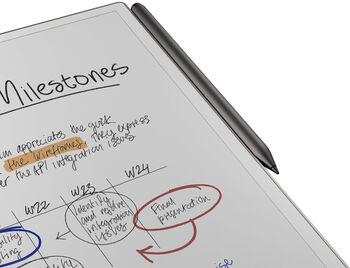 Milestones
appreciates the quick
the wireframes. They express
the API integration issues
W22 W23 W24
Identify
and resolve
integration
issues
Final
presentation